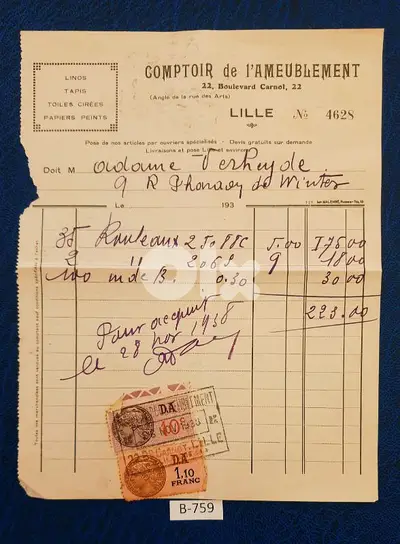 LINOS
TAPIS
TOILES CIRÉES
PAPIERS PEINTS
COMPTOIR de l'AMEUBLEMENT
22, Boulevard Carnot, 22
(Angle de la rue des Arts)
LILLE No 4628
Pose de nos articles par ouvriers spécialisés - Devis gratuits sur demande
Livraisons et pose Lille et environs
Doit M adame Verhuyde
9 R de Winter
Le 193
35 Rouleaux 25088C 5.00 175.00
2 " 2068 9 18.00
100 m de B. 0.30 30.00
223.00
Pour acquit
le 28 nov 1938
DA
DA
1.10
FRANC
LILLE
B-759